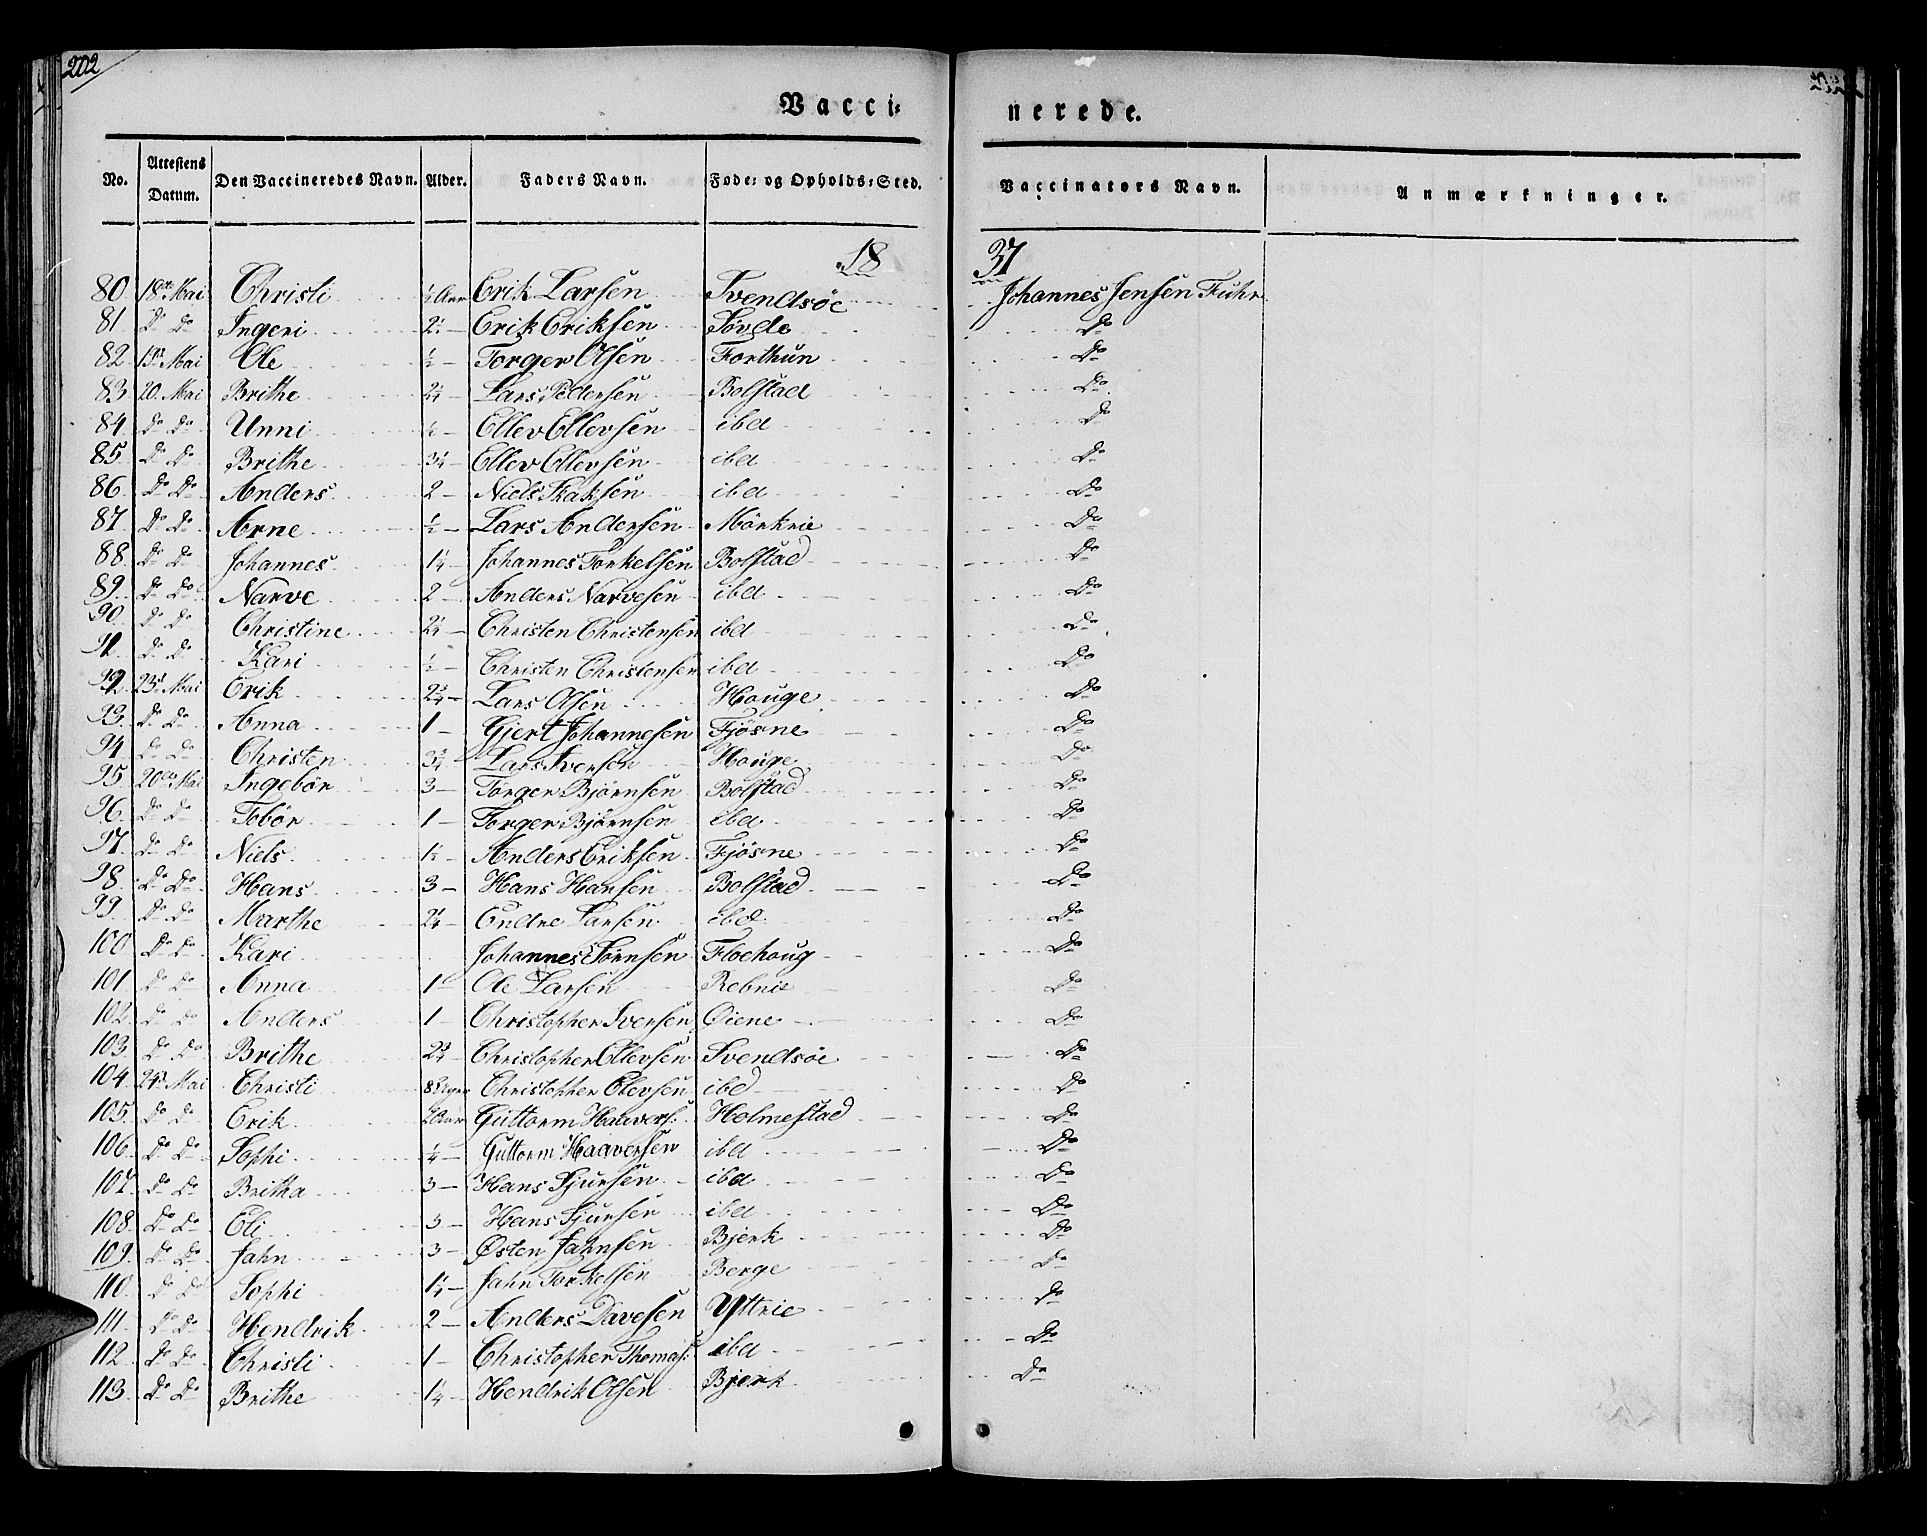 202
Vacci-
nerede.
No. Attestens Datum. Den Vaccineredes Navn. Alder. Faders Navn. Føde- og Opholds-Sted. Vaccinators Navn. Anmærkninger.
18 37
80. 18de Mai Christi ½ Aar Erik Larsen Svendsöe Johannes Jensen Fuhr
81 Do Do Ingeri 2½ — Erik Eriksen Sövde Do
82. Mai Ole ½ — Torger Olsen Forthun Do
83 20. Mai Brithe 2¼ Lars Pedersen Bolstad Do
84. Do Do Unni ½ — Ellev Ellevsen ibd Do
85. Do Do Brithe 3¼ Ellev Ellevsen ibd Do
86. Do Do Anders 2 — Niels ibd Do
87. Do Do Arne ½ — Lars Andersen Mörkrie Do
88. Do Do Johannes 1¼ Johannes Torkelsen Bolstad Do
89. Do Do Narve 2 — Anders Narvesen ibd Do
90. Do Do Christine 2¼ — Christen Christensen ibd Do
91. Do Do Kari ½ — Christen Christensen ibd Do
92. 23d Mai Erik 2¾ — Lars Olsen Houge Do
93. Do Do Anna 1 — Gjert Johannesen Fjösne Do
94. Do Do Christen 3¾ Lars Iversen Houge Do
95 20de Mai Ingebör 3 — Torger Björnsen Bolstad Do
96. Do Do Tobör 1 — Torger Björnsen ibd Do
97. Do Do Niels 1½ — Anders Eriksen Fjösne Do
98. Do Do Hans 3 — Hans Hansen Bolstad Do
99. Do Do Marthe 2¼ Endre Larsen ibd Do
100 Do Do Kari Johannes Flohoug Do
101 Do Do Anna 1 — Ole Larsen Rebnie Do
102. Do Do Anders 1 — Christopher Iversen Øiene Do
103. Do Do Brithe 2¾ — Christopher Ellevsen Svendsöe Do
104. 24d Mai Christi 8 Uger Christopher Elevsen ibd Do
105. Do Do Erik Aar Guttorm Haavers: Holmestad Do
106. Do Do Sophi ¼ — Guttorm Haaversen ibd Do
107. Do Do Britha 3 — Hans Sjursen ibd Do
108. Do Do Eli 3 — Hans Sjursen ibd Do
109. Do Do Jahn 3 — Østen Jahnsen Bjerk Do
110. Do Do Sophi 1¼ — Jahn Torkelsen Berge Do
111. Do Do Hendrik 2 — Anders Davesen Yttrie Do
112. Do Do Christi 1 — Christopher Thomas: ibd Do
113. Do Do Brithe 1¼ — Hendrik Olsen Bjerk Do